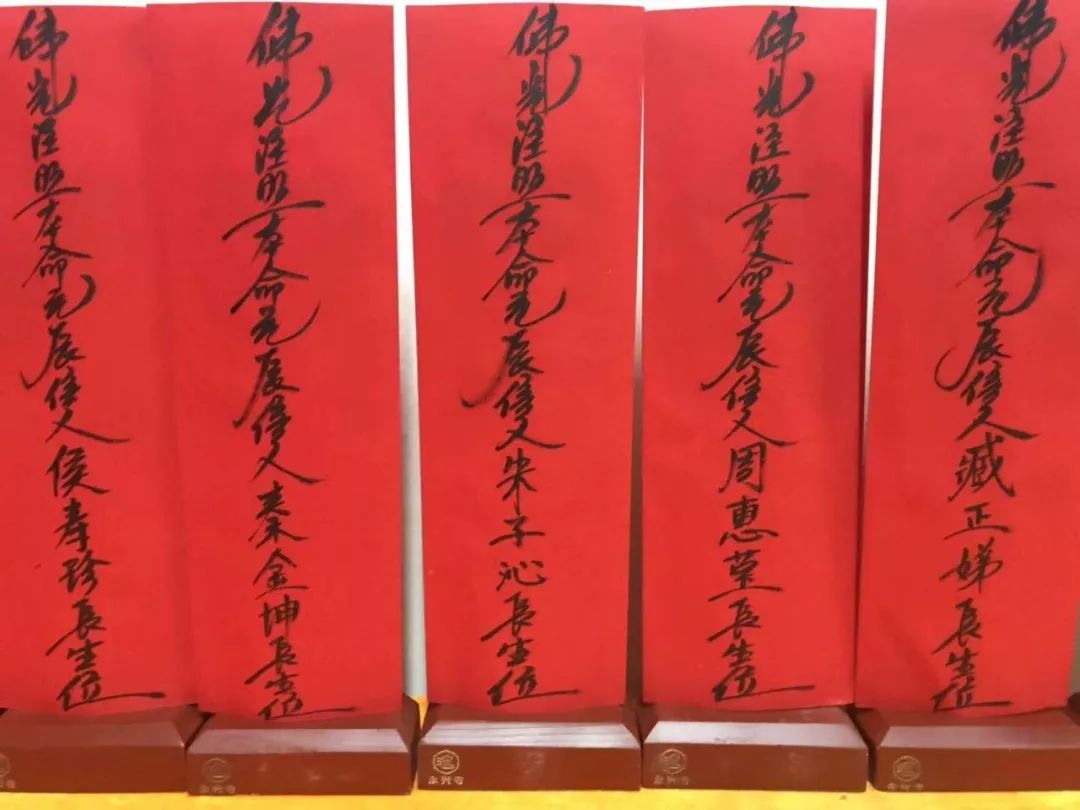 佛光注照本命元辰信人侯寿珍長生位
佛光注照本命元辰信人秦金坤長生位
佛光注照本命元辰信人朱子沁長生位
佛光注照本命元辰信人周惠長生位
佛光注照本命元辰信人臧正娣長生位
永兴寺
永兴寺
永兴寺